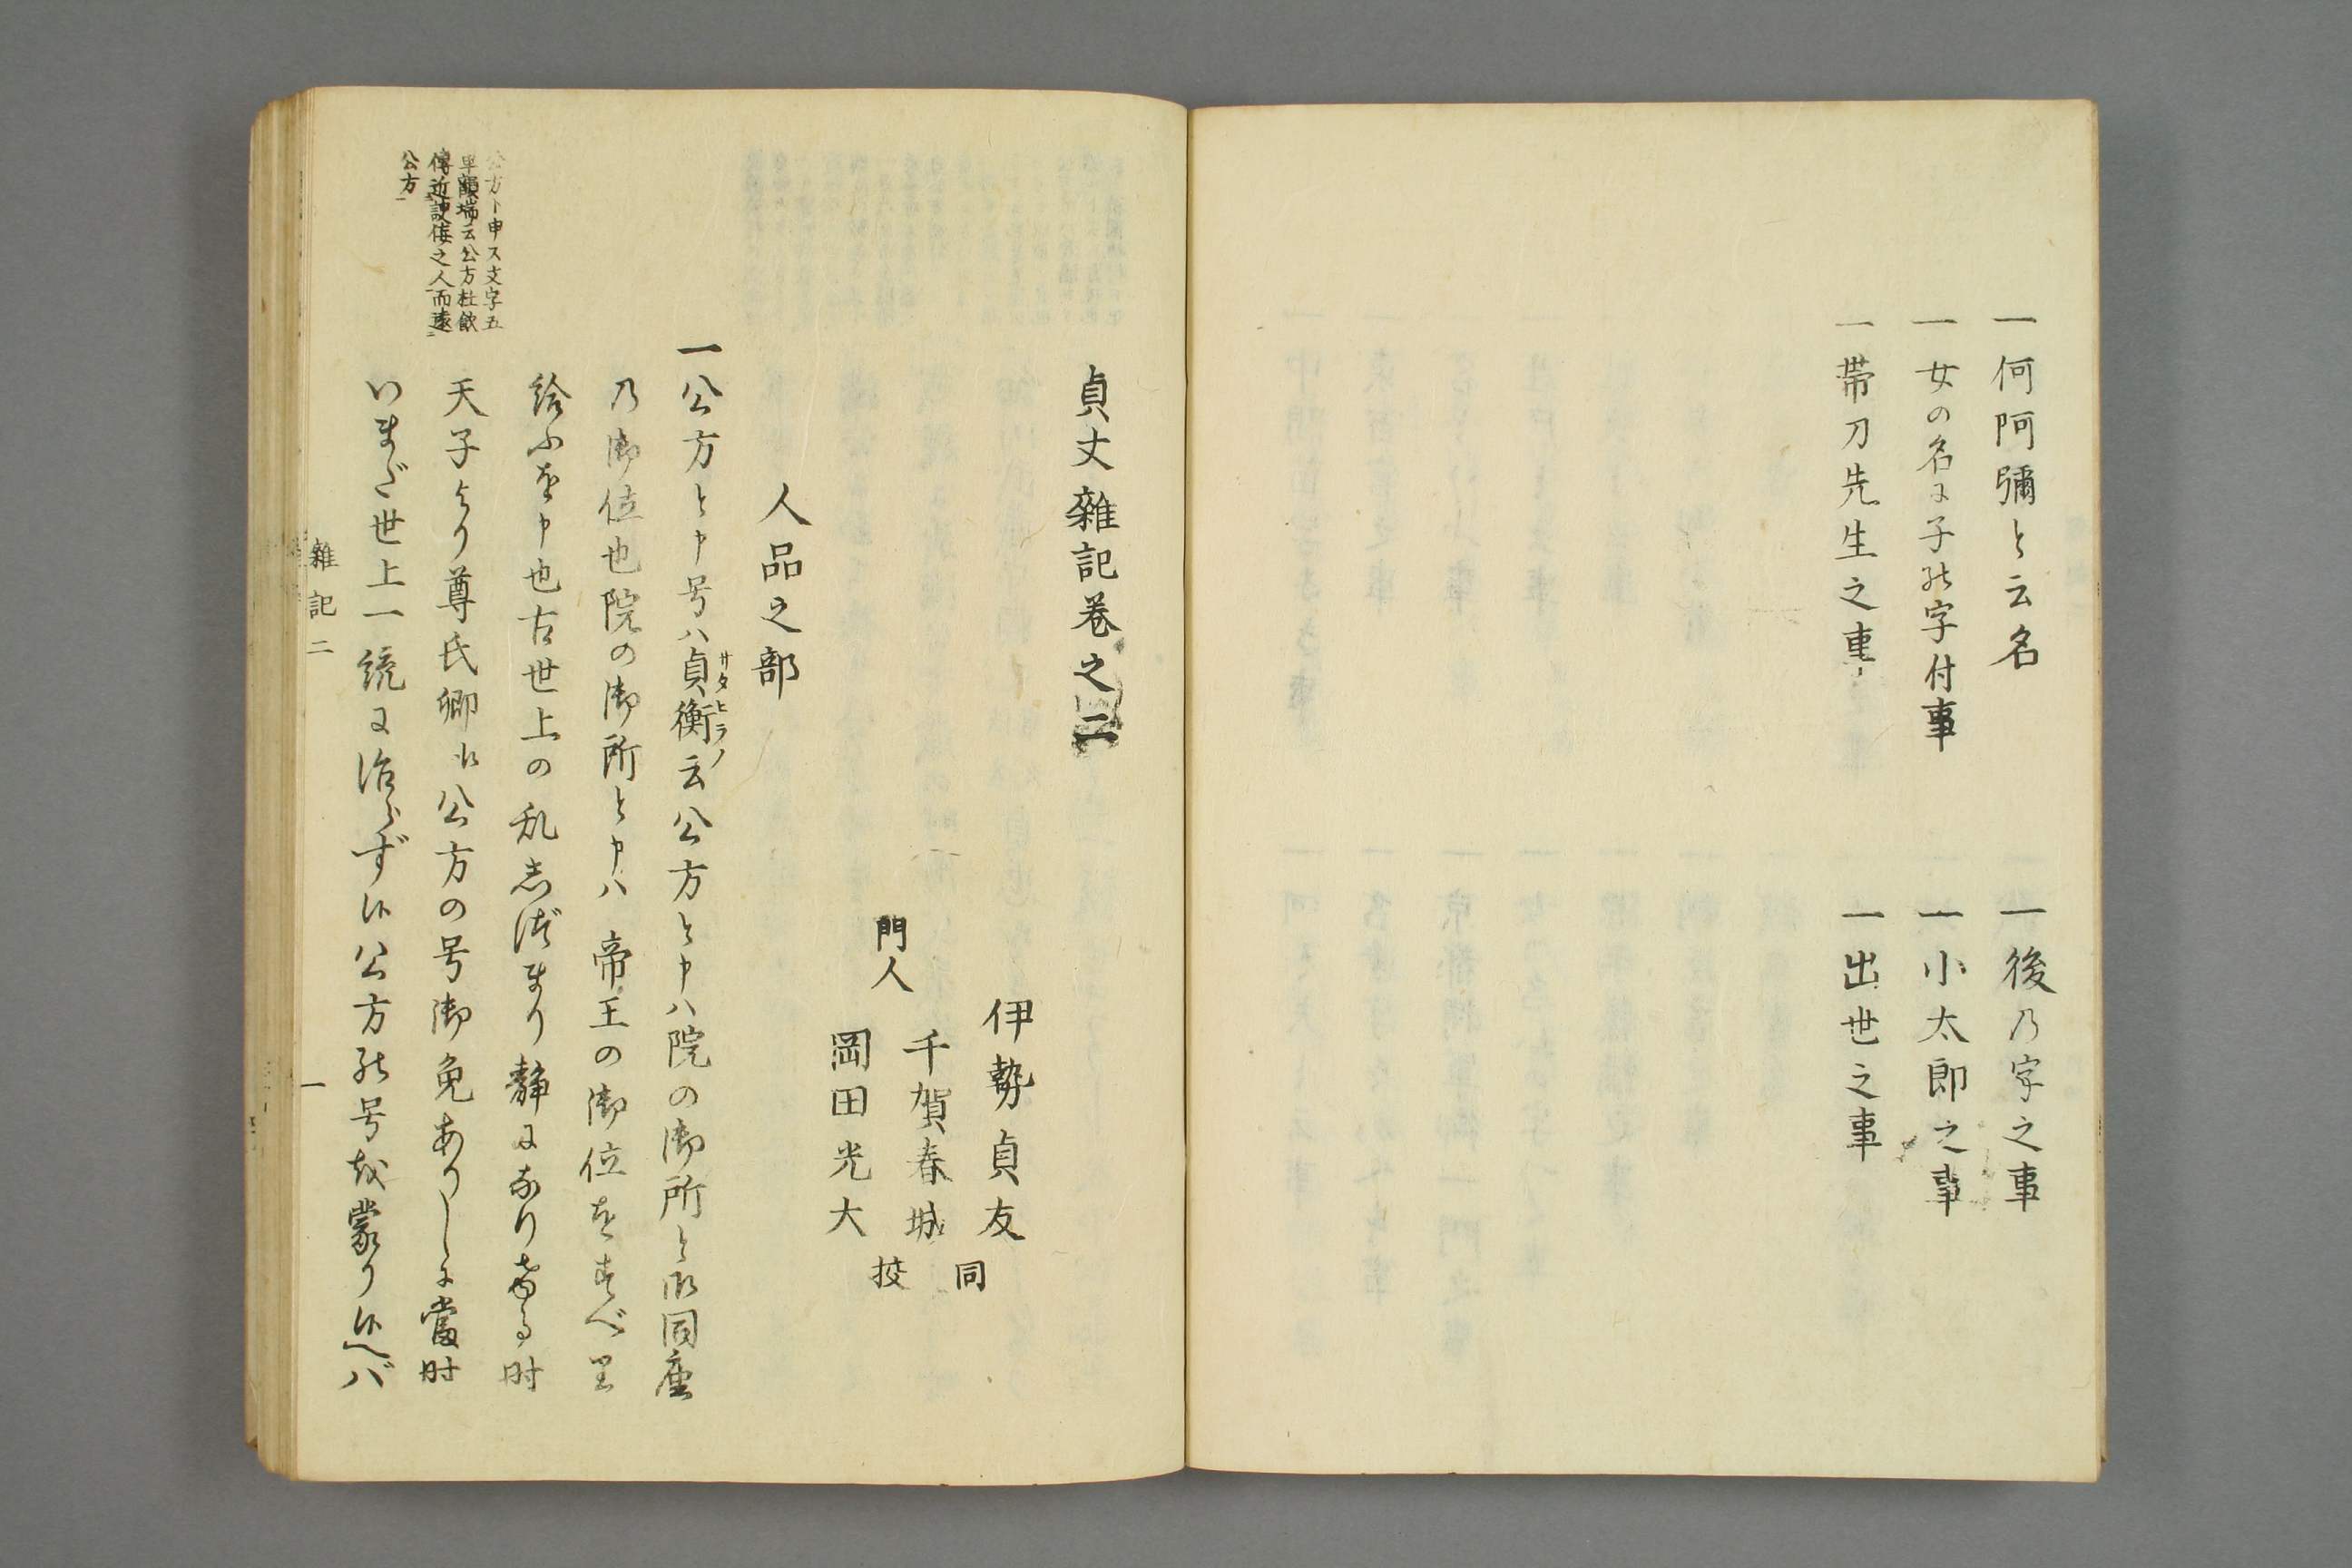 一何阿彌と云名
一後乃字之事
一女の名に子の字付事
一小太郎之事
一帯刀先生之事
一出世之事
貞丈雜記巻之二
伊勢貞友
門人
千賀春城
岡田光大
同
挍
人品之部
一公方と申号ハ貞衡云公方と申ハ院の御所と御同座
サタヒラノ
乃御位也院の御所と申ハ帝王の御位をすべり
給ふを申也古世上の乱志づまり静になりける時
天子より尊氏卿に公方の号御免ありしに當時
いまだ世上一統に治らず候公方の号を蒙り候へバ
公方ト申ス文字五
車韻瑞云公方杜欽
傳近諛佞之人而遠
公方
雜記二
一